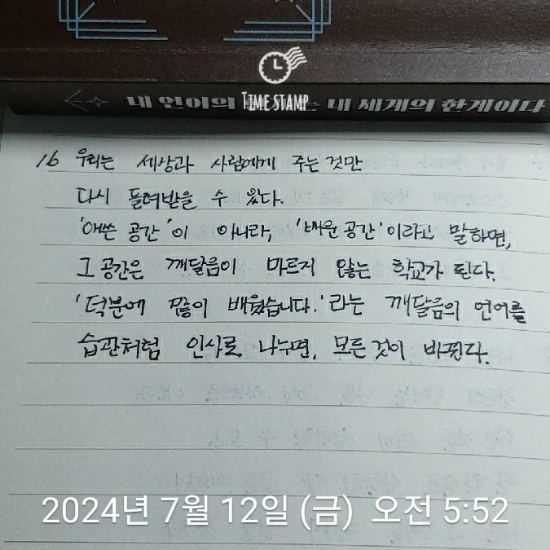 TIME STAMP
내 언어의 내 세계의 한계이다
16 우리는 세상과 사람에게 주는 것만
다시 돌려받을 수 있다.
'애쓴 공간'이 아니라, '배운 공간'이라고 말하면,
그 공간은 깨달음이 마르지 않는 학교가 된다.
'덕분에 많이 배웠습니다.'라는 깨달음의 언어를
습관처럼 인사로 나누면, 모든 것이 바뀐다.
2024년 7월 12일 (금) 오전 5:52